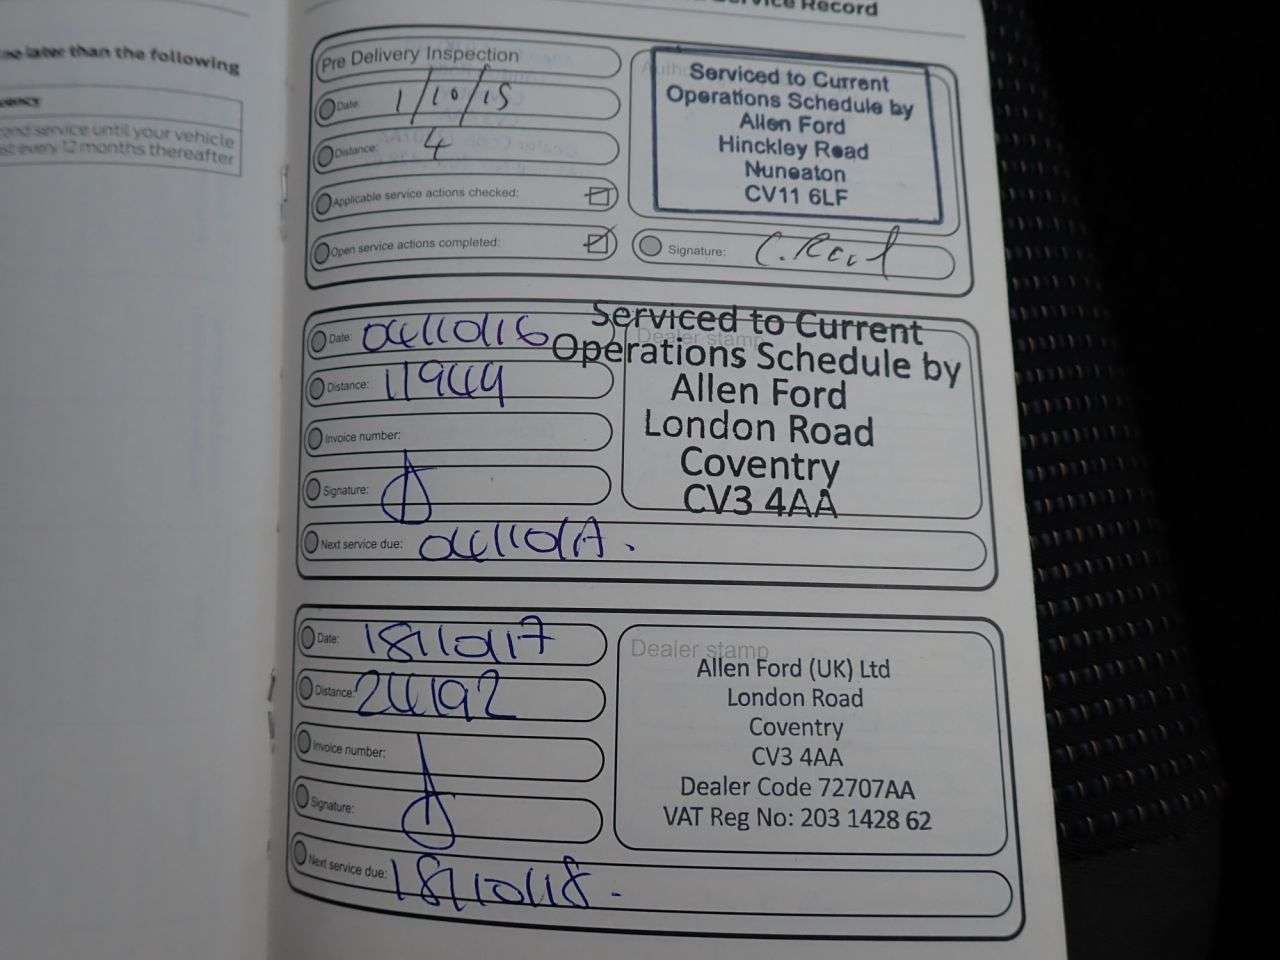 Service Record
no later than the following
and service until your vehicle
every 12 months thereafter
Pre Delivery Inspection
Date: 1/10/15
Distance: 4
Applicable service actions checked:
Open service actions completed:
Serviced to Current
Operations Schedule by
Allen Ford
Hinckley Road
Nuneaton
CV11 6LF
Signature:
Date: 04/10/16
Distance: 11944
Invoice number:
Signature:
Next service due: 04/10/17.
Dealer stamp
Serviced to Current
Operations Schedule by
Allen Ford
London Road
Coventry
CV3 4AA
Date: 18/10/17
Distance: 24192
Invoice number:
Signature:
Next service due: 18/10/18.
Dealer stamp
Allen Ford (UK) Ltd
London Road
Coventry
CV3 4AA
Dealer Code 72707AA
VAT Reg No: 203 1428 62